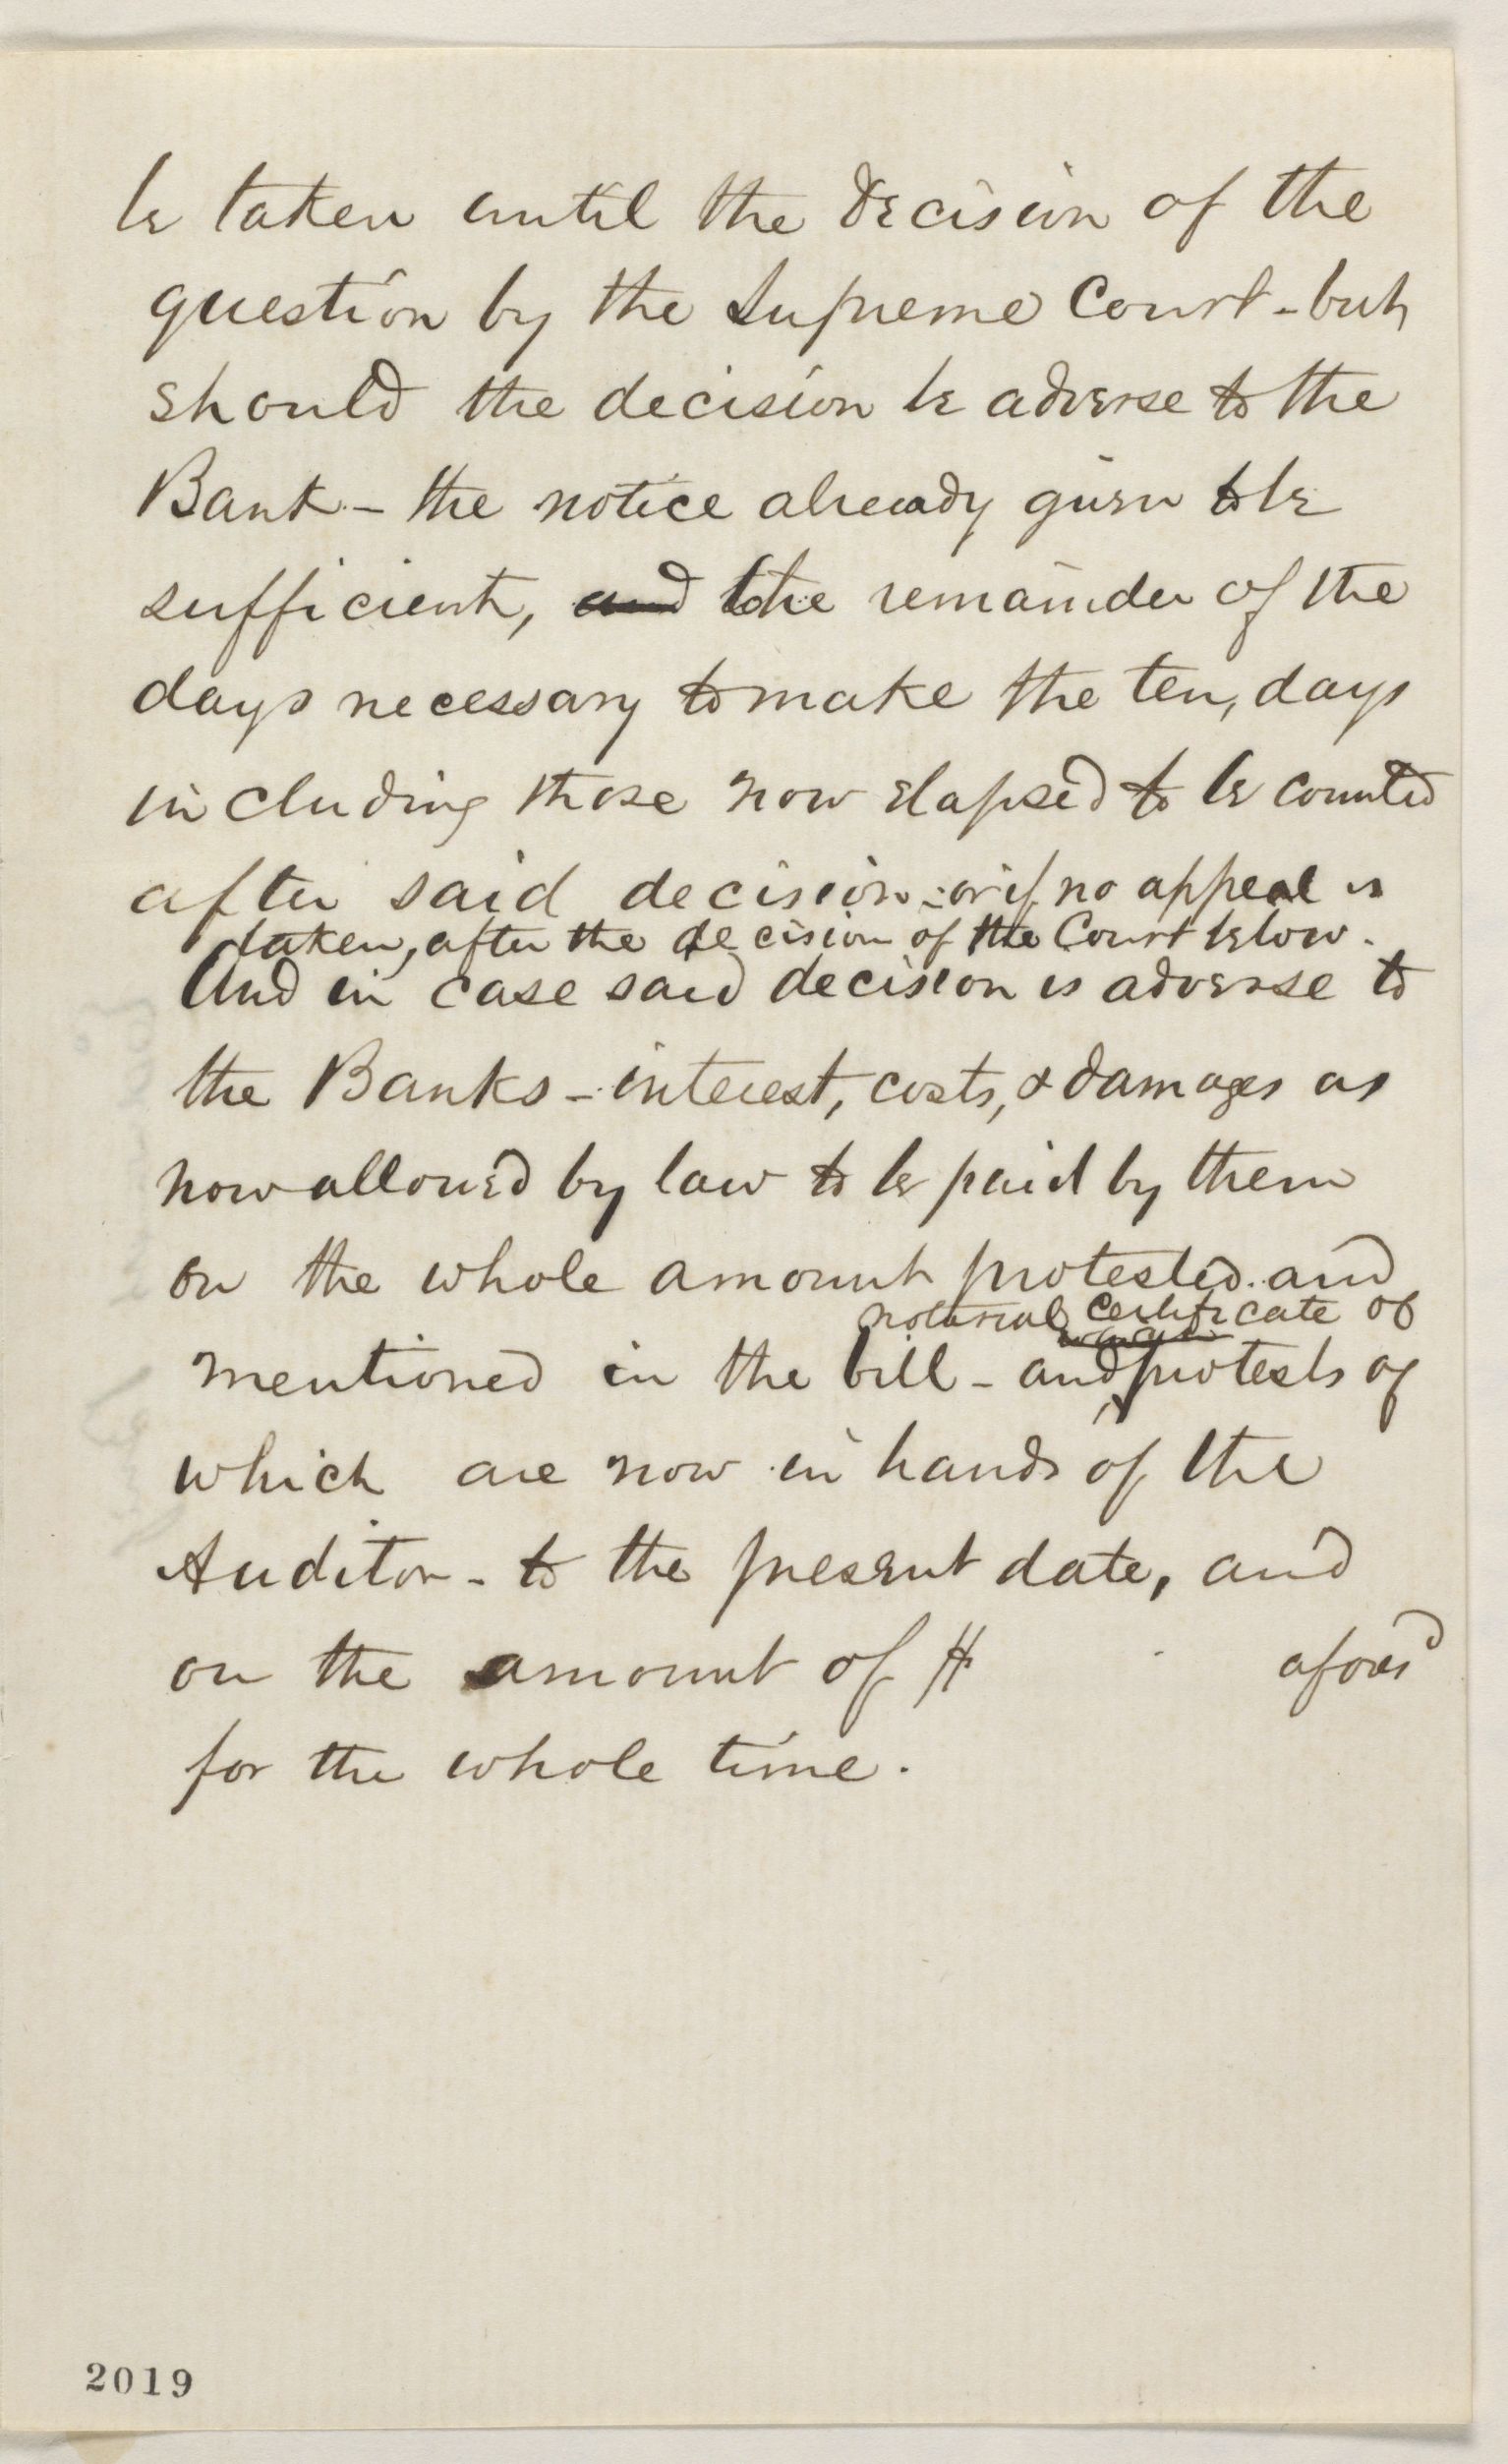 be taken until the decision of the
question by the Supreme Court - but
should the decision be adverse to the
Bank - the notice already given to be
sufficient, and the remainder of the
days necessary to make the ten, days
including those now elapsed to be counted
after said decision - or if no appeal is
taken, after the decision of the Court below.
And in case said decision is adverse to
the Banks - interest, costs, & damages as
now allowed by law to be paid by them
on the whole amount protested and
notarial certificate of
mentioned in the bill - and protests of
which are now in hands of the
Auditor - to the present date, and
on the amount of $ afores'd
for the whole time.
2019